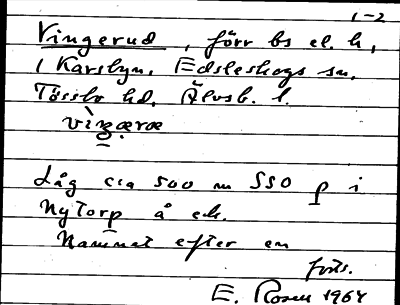 1-2
Vingerud, förr bs el. h,
i Karsbyn, Edsleskogs sn,
Tössbo hd. Älvsb. l.
vìŋæræ
Låg cia 500 m SSO p i
Nytorp å ek.
Namnet efter en
forts.
E. Rosen 1964